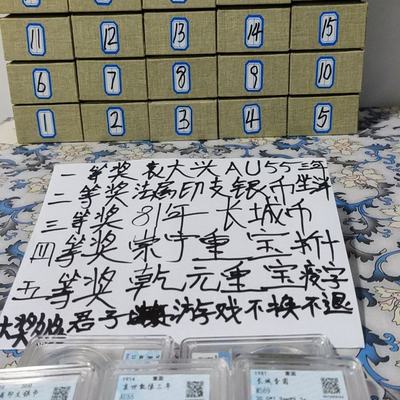 11 12 13 14 15
6 7 8 9 10
1 2 3 4 5
一等奖 袁大头 AU55 三年
二等奖 法属印支银币坐洋
三等奖 81年长城币
四等奖 崇宁重宝折十
五等奖 乾元重宝瘦字
大奖 君子 游戏不换不退
1914
袁世凯像三年
AU55
1981
长城壹圆
MS69